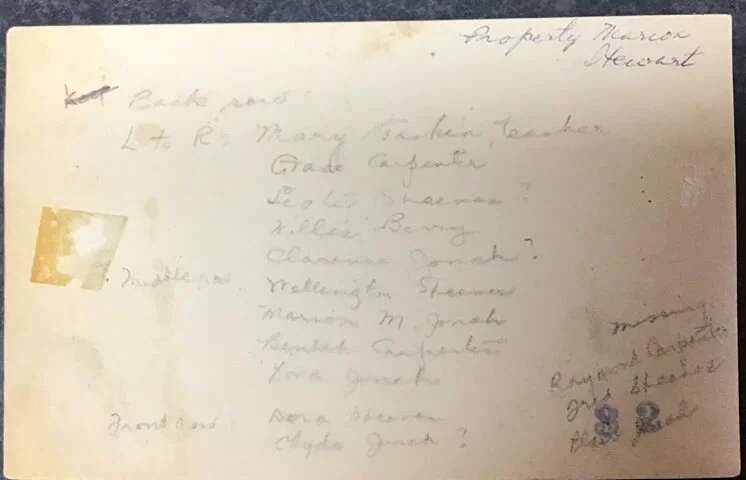 Property Marion
Stewart
Back row
L to R: Mary Gaskin, teacher
Grace Carpenter
Leslie Steeves ?
Willis Berry
Clarence Jonah ?
Middle row. Wellington Steeves
Marion M. Jonah
Beulah Carpenter
Jonah
Front row Dora Steeves
Clyde Jonah ?
missing
Raymond Carpenter
Fred Steeves
32
Jonah